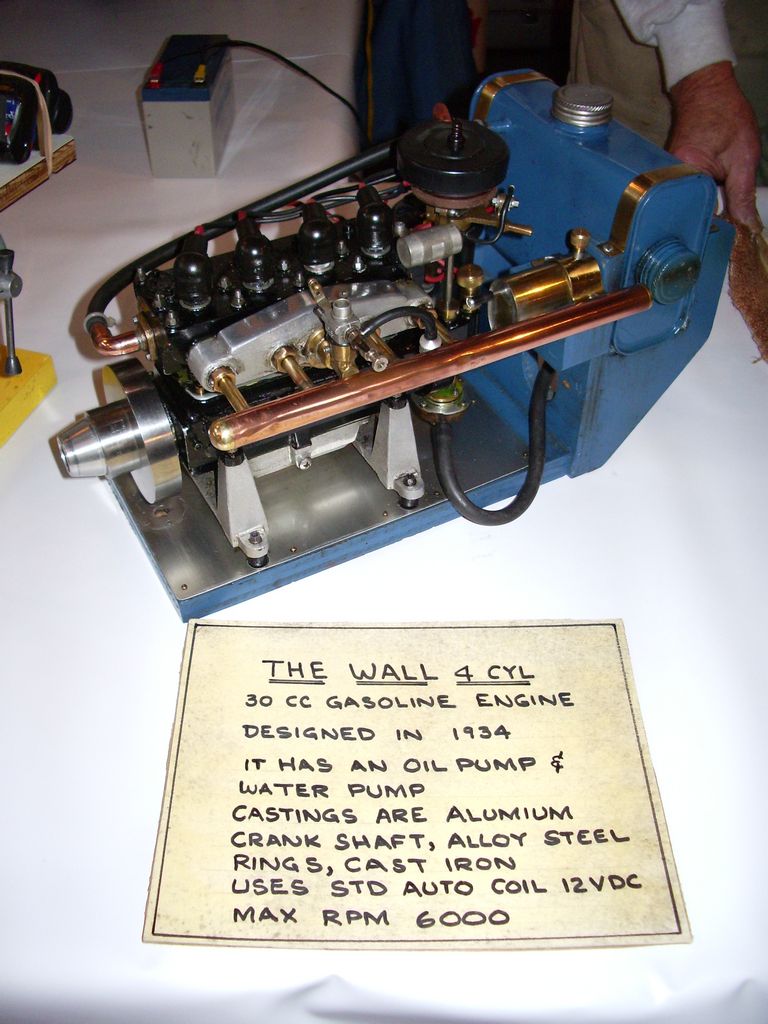 THE WALL 4 CYL
30 CC GASOLINE ENGINE
DESIGNED IN 1934
IT HAS AN OIL PUMP &
WATER PUMP
CASTINGS ARE ALUMIUM
CRANK SHAFT, ALLOY STEEL
RINGS, CAST IRON
USES STD AUTO COIL 12VDC
MAX RPM 6000